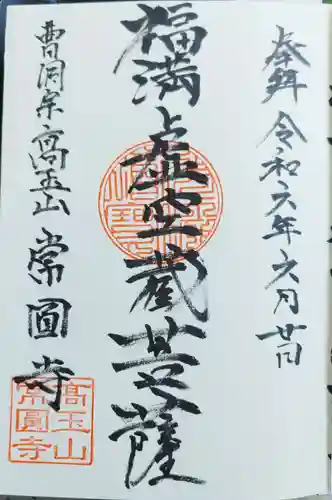 奉拝 令和六年六月廿日
福満虚空蔵菩薩
曹洞宗 高玉山 常圓寺
高玉山
常圓寺